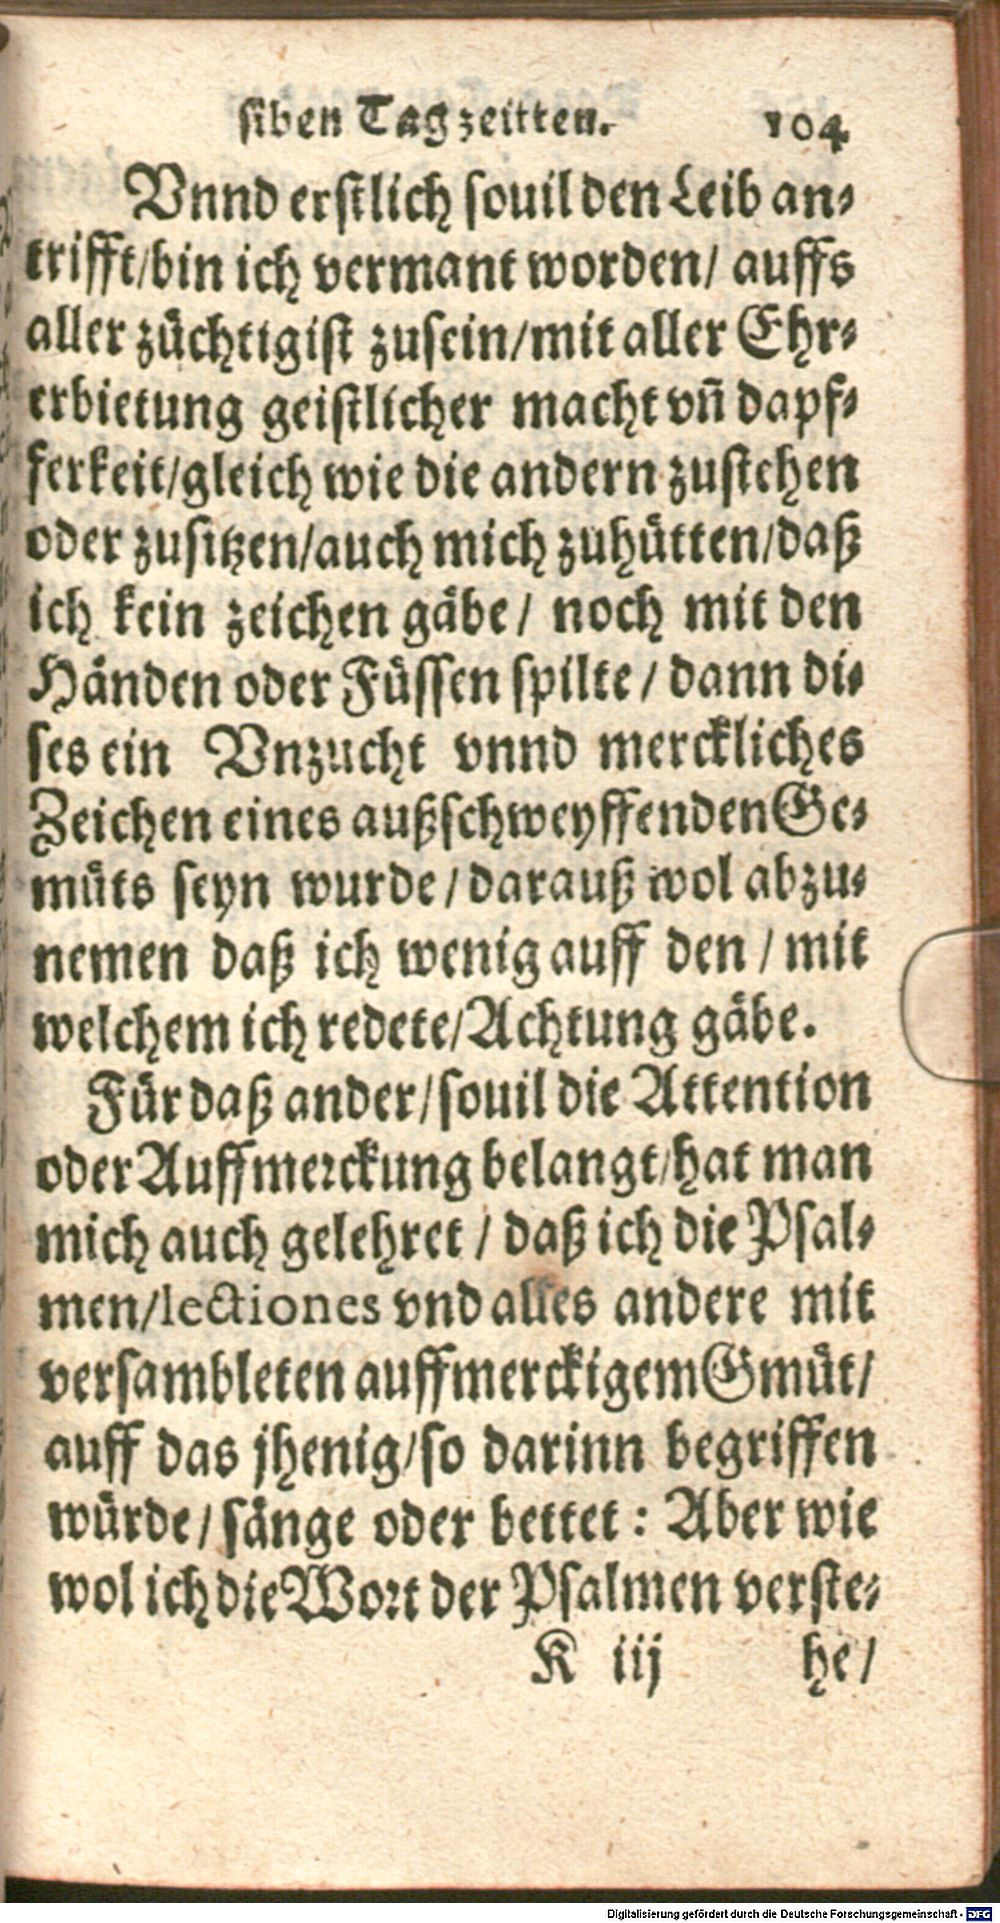 siben Tagzeitten. 104
Vnnd erstlich souil den Leib an-
trifft/bin ich vermant worden/ auffs
aller züchtigist zusein/mit aller Ehr-
erbietung geistlicher macht vn̄ dapf-
ferkeit/gleich wie die andern zustehen
oder zusitzen/auch mich zuhütten/daß
ich kein zeichen gäbe/ noch mit den
Händen oder Füssen spilte/ dann di-
ses ein Vnzucht vnnd merckliches
Zeichen eines außschweyffenden Ge-
müts seyn wurde/darauß wol abzu-
nemen daß ich wenig auff den/mit
welchem ich redete/Achtung gäbe.
Für daß ander/souil die Attention
oder Auffmerckung belangt/hat man
mich auch gelehret/ daß ich die Psal-
men/lectiones vnd alles andere mit
versambleten auffmerckigem Gmüt/
auff das jhenig/so darinn begriffen
würde/sänge oder bettet: Aber wie
wol ich die Wort der Psalmen verste-
K iij he/
Digitalisierung gefördert durch die Deutsche Forschungsgemeinschaft - DFG